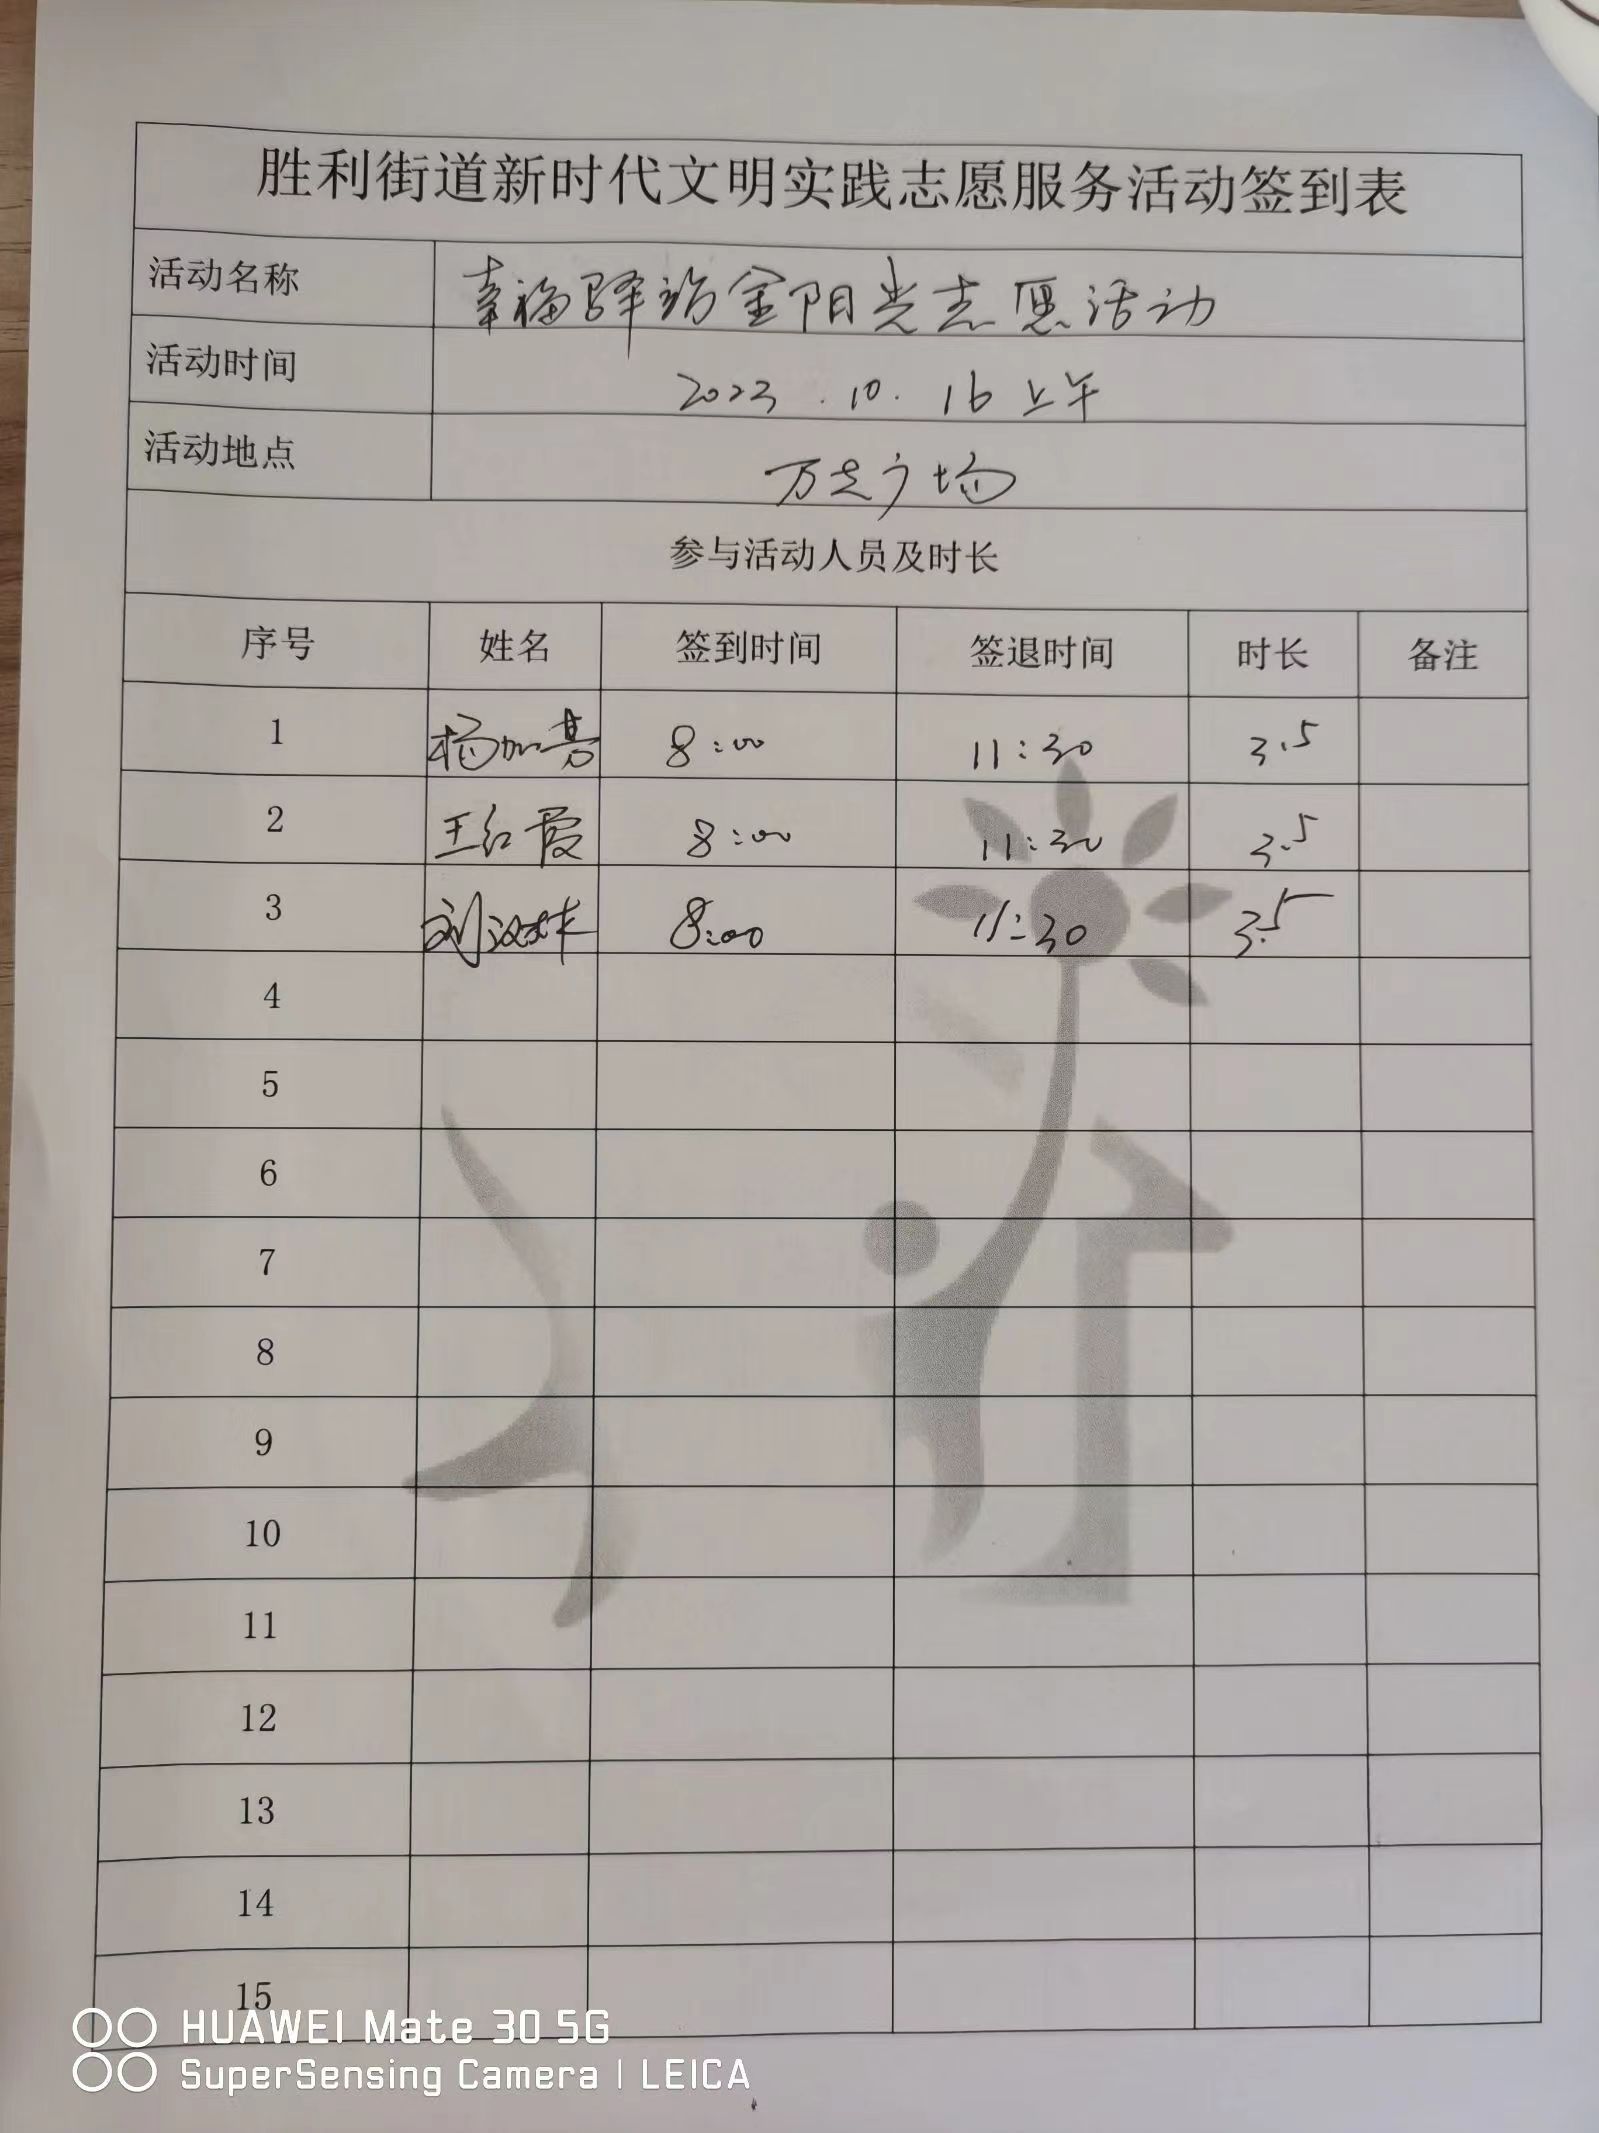 胜利街道新时代文明实践志愿服务活动签到表
活动名称 幸福驿站金阳光志愿活动
活动时间 2023.10.16上午
活动地点 万达广场
参与活动人员及时长
序号 姓名 签到时间 签退时间 时长 备注
1 杨加芳 8:00 11:30 3.5
2 王红霞 8:00 11:30 3.5
3 刘汉林 8:00 11:30 3.5
4
5
6
7
8
9
10
11
12
13
14
15
HUAWEI Mate 30 5G
SuperSensing Camera | LEICA